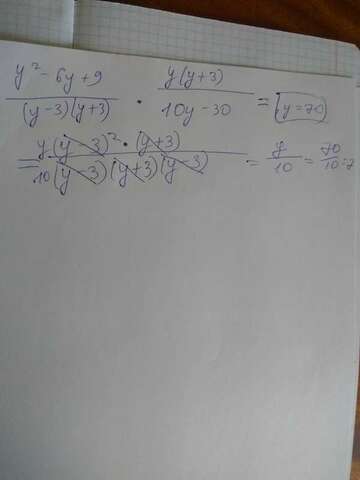 y² - 6y + 9 / (y-3)(y+3) · y(y+3) / 10y - 30 = [y=70]
= y(y-3)² · (y+3) / 10(y-3)(y+3)(y-3) = y/10 = 70/10 = 7